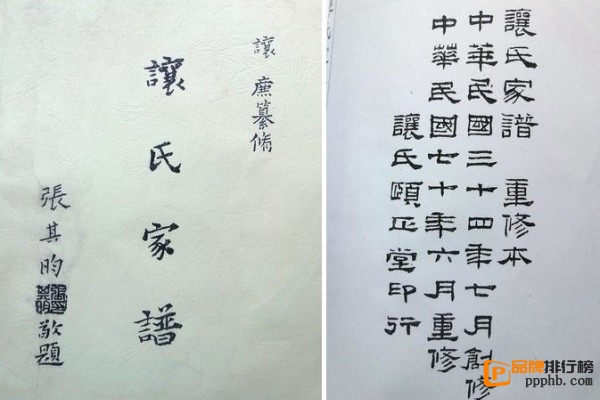 讓廉纂脩
讓氏家譜
張其昀敬題
讓氏家譜 重修本
中華民國三十四年七月創修
中華民國七十年六月重修
讓氏頤正堂印行
品牌排行榜
ppphb.com